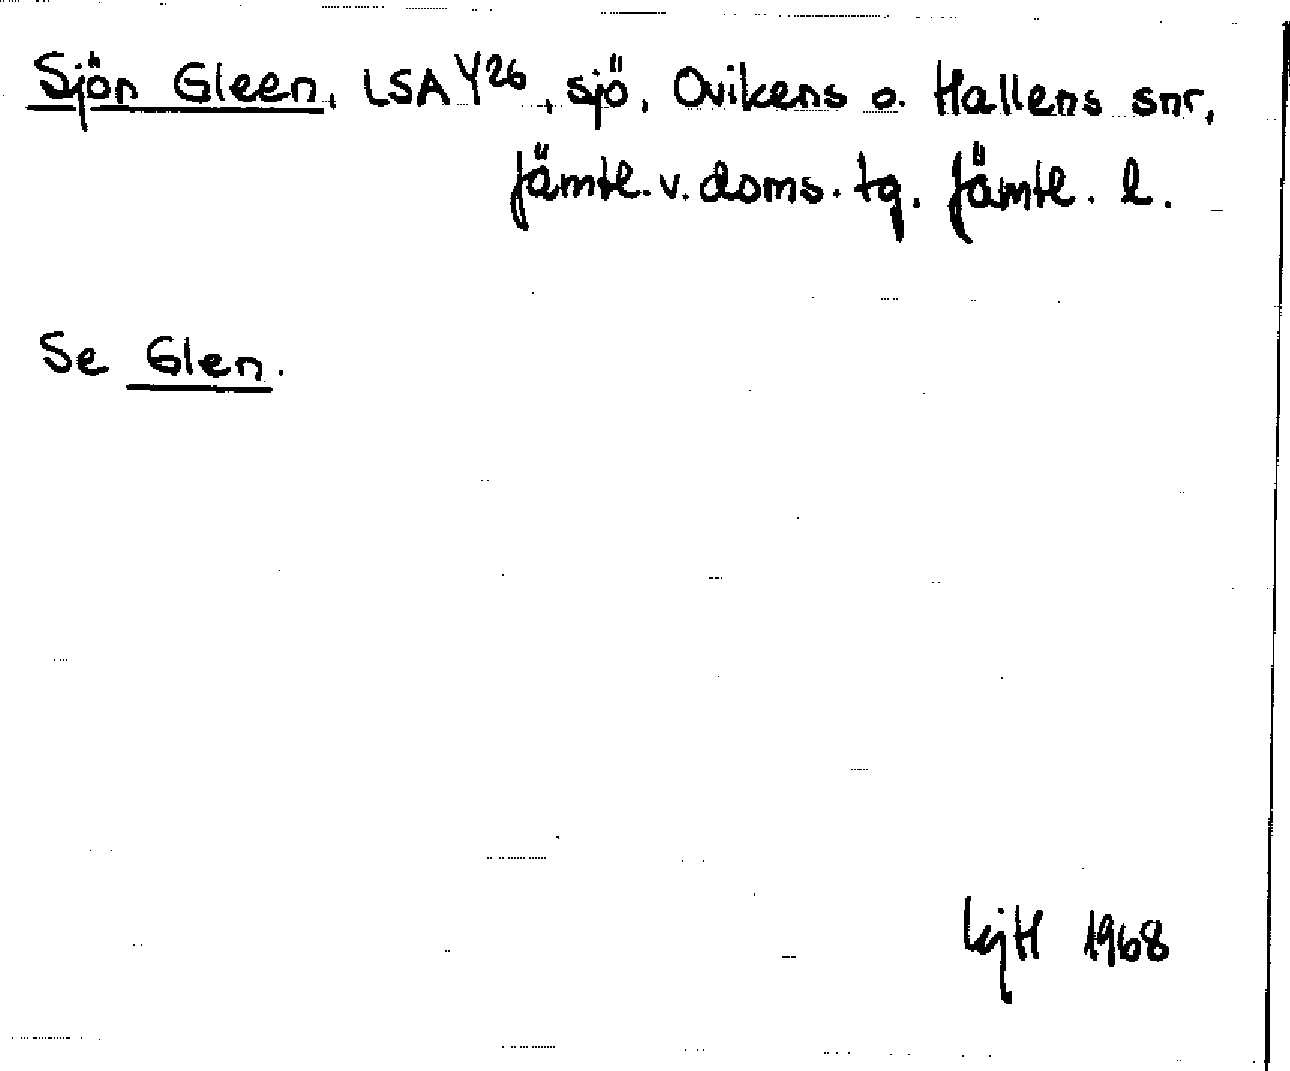 Sjön Gleen, LSA Y26, sjö, Ovikens o. Hallens snr,
Jämtl. v. doms. tg. Jämtl. l.
Se Glen.
1968